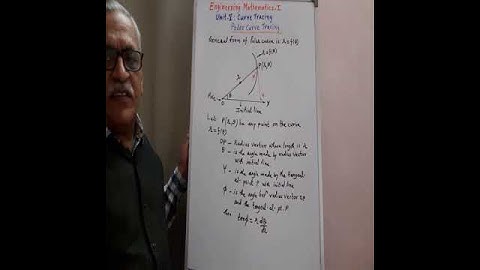 Engineering Mathematics-I
Unit-I: Curve Tracing
Polar Curve Tracing
General form of Polar curve is r=f(θ)
r=f(θ)
P(r,θ)
r
Pole
O
θ
L
X
Initial line
Let P(r,θ) be any point on the curve
r=f(θ)
OP – Radius vector whose length is r
θ – is the angle made by radius vector
with initial line
Ψ – is the angle made by the tangent
at point P with initial line
φ – is the angle betn radius vector OP
and the tangent at pt. P
tanφ = r dθ/dr